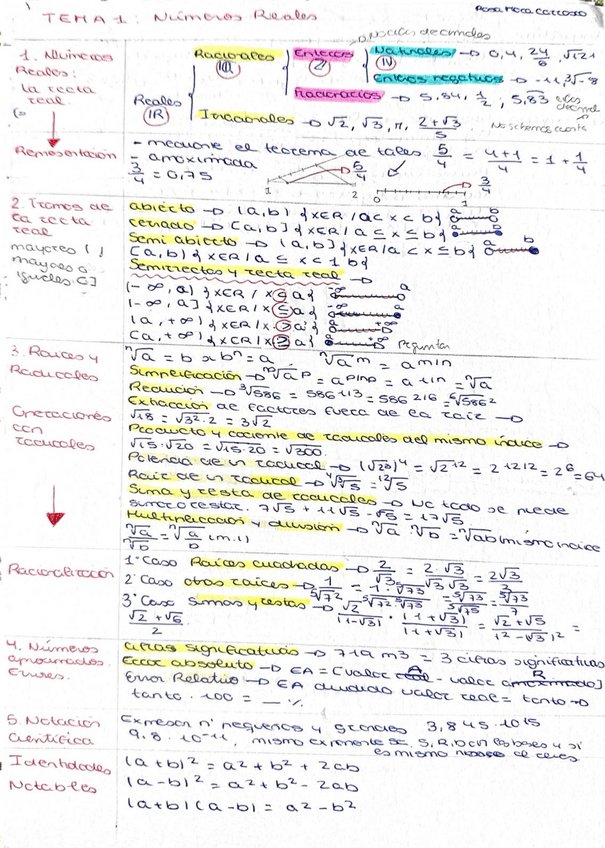 TEMA 1: Números Reales
1. Números Reales: la recta real.
Reales (ℝ)
Racionales (ℚ)
Enteros (ℤ)
Naturales (ℕ) → 0, 4, 24/6, √121
Enteros negativos → -11, ³√-8
Fraccionarios → 5,84, 1/2, 5,83
Irracionales → √2, √3, π, (2+√3)/5
Representación
- mediante el teorema de tales 5/4 = (4+1)/4 = 1 + 1/4
- aproximada
3/4 = 0,75
1 2 5/4
0 1 3/4
2. Tramos de la recta real
mayores ( )
mayores o iguales []
abierto → (a,b) {x∈R/a<x<b} a b
cerrado → [a,b] {x∈R/a≤x≤b} a b
Semi abierto → (a,b] {x∈R/a<x≤b} a b
[a,b) {x∈R/a≤x<b}
Semirrectas y recta real →
(-∞,a) {x∈R/x<a} -∞ a
(-∞,a] {x∈R/x≤a} -∞ a
(a,+∞) {x∈R/x>a} a +∞
[a,+∞) {x∈R/x≥a} a +∞
3. Raíces y Radicales
ⁿ√a = b ⁿ√aᵐ = a m/n
Simplificación →
Reducción → ³√586 = 586 1/3 = 586 2/6 = ⁶√586²
Extracción de factores fuera de la raíz →
√18 = √3²·2 = 3√2
Operaciones con radicales
Producto y cociente de radicales del mismo índice →
√15·√20 = √15·20 = √300
Potencia de un radical → = 2⁶ = 64
Raíz de un radical → = ¹²√5
Suma y resta de radicales → No todo se puede
sumar o restar. 7√5 + 11√5 - √5 = 17√5
Multiplicación y división → ⁿ√a · ⁿ√b = ⁿ√ab (mismo índice
ⁿ√a/ⁿ√b = ⁿ√a/b (m.i)
Racionalización
1º Caso Raíces cuadradas → 2/√3 = 2·√3/√3·√3 = 2√3/3
2º Caso otras raíces →
3º Caso sumas y restas →
(√2+√6)/2
4. Números aproximados. Errores.
cifras significativas → 719 m3 = 3 cifras significativas
Error absoluto → EA = [valor A - valor R]
Error Relativo → EA dividido valor real = tanto →
tanto · 100 = __ %
5. Notación Científica
Expresar nº pequeños y grandes 3,845·10¹⁵
9,8·10⁻¹¹, mismo exponente se
Identidades Notables
(a+b)² = a²+b²+2ab
(a-b)² = a²+b²-2ab
(a+b)(a-b) = a²-b²